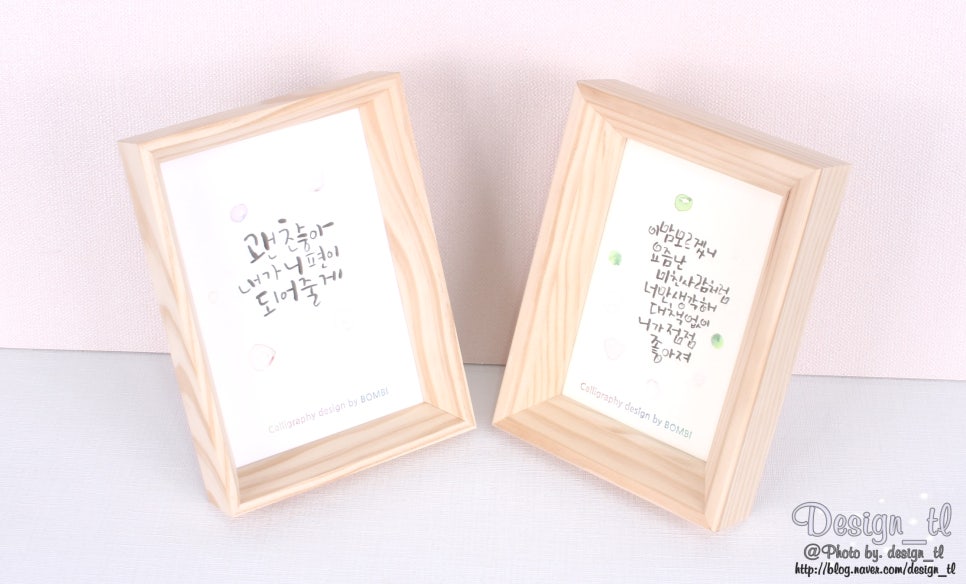 괜찮아
내가 니편이
되어줄게
Calligraphy design by BOMBI
이밤모르겠니
요즘난
미친사람처럼
너만생각해
대책없이
니가점점
좋아져
Calligraphy design by BOMBI
Design_tl
@Photo by. design_tl
http://blog.naver.com/design_tl